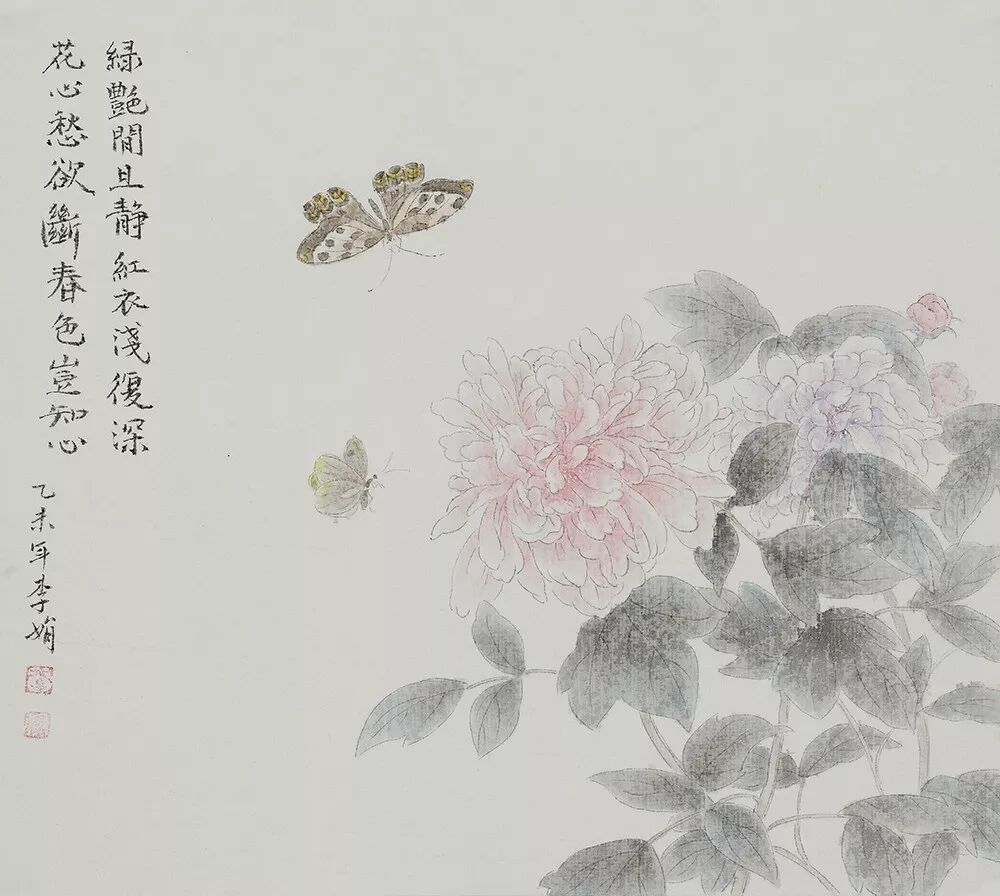 緑艷閒且靜紅衣淺復深
花心愁欲斷春色豈知心
乙未年李娟